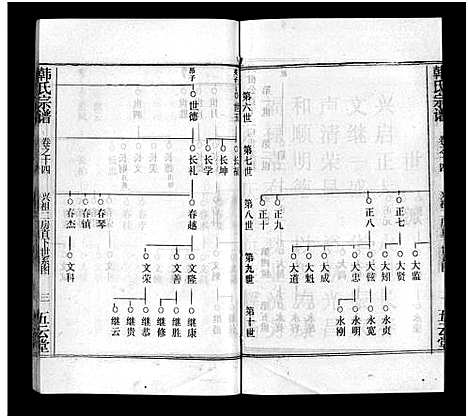 韩氏宗谱
大监
正七
大贤
卷之十四
大翊
永贞
正八
大弦
永宽
大忠
永明
大道
永刚
大成
大魁
正九
正十
第六世
第七世
第八世
第九世
第十世
长坤
长学
昂子
世德
长礼
春越
文隆
继康
文善
继胜
继修
文荣
继恭
继贵
继云
春琴
春镇
春杰
文科
韩氏宗谱
卷之十四
兴祖二房直下世系图
三
五云堂